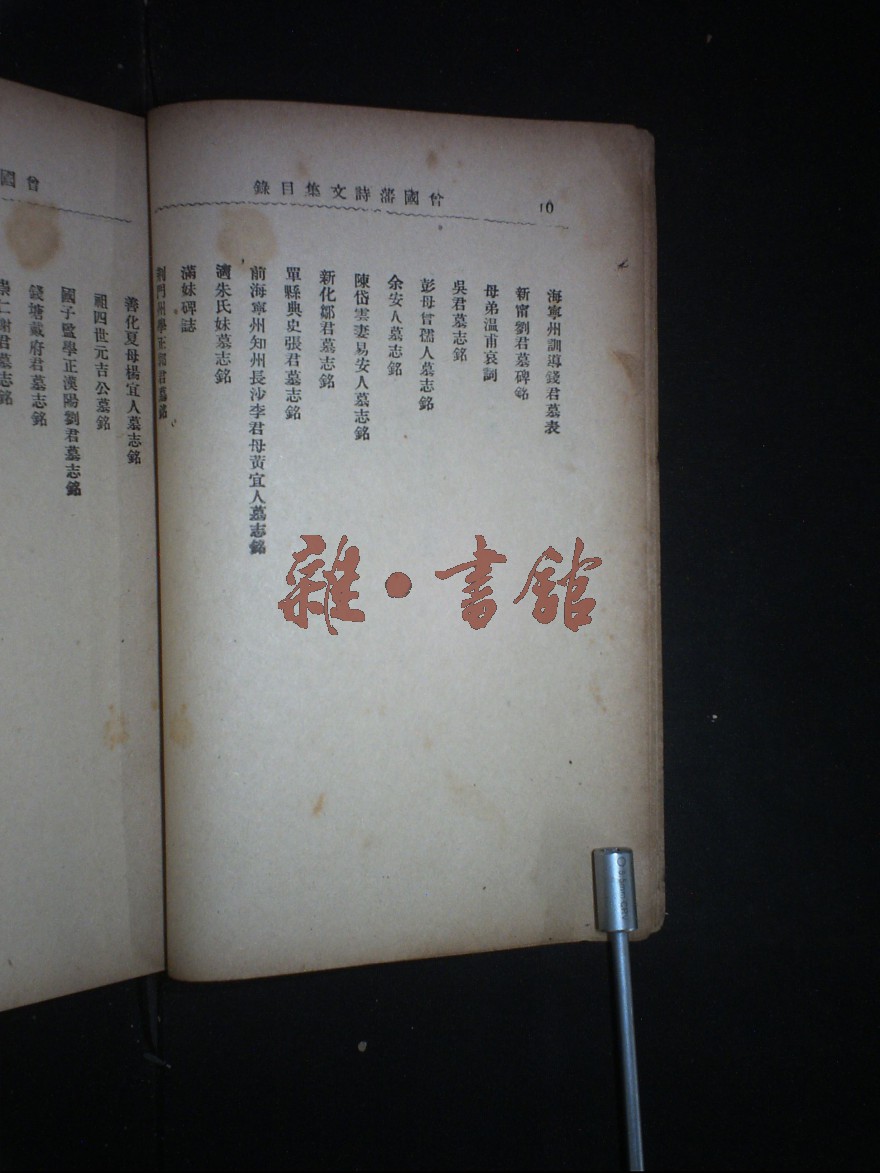 曾國藩詩文集目錄
10
海寧州訓導錢君墓表
新甯劉君墓碑銘
母弟温甫哀詞
吳君墓志銘
彭母曾孺人墓志銘
余安人墓志銘
陳岱雲妻易安人墓志銘
新化鄒君墓志銘
單縣典史張君墓志銘
前海寧州知州長沙李君母黃宜人墓志銘
適朱氏妹墓志銘
滿妹碑誌
荆門州學正郭君墓志銘
曾國
善化夏母楊宜人墓志銘
祖四世元吉公墓銘
國子監學正漢陽劉君墓志銘
錢塘戴府君墓志銘
崇仁謝君墓志銘
雜·書館